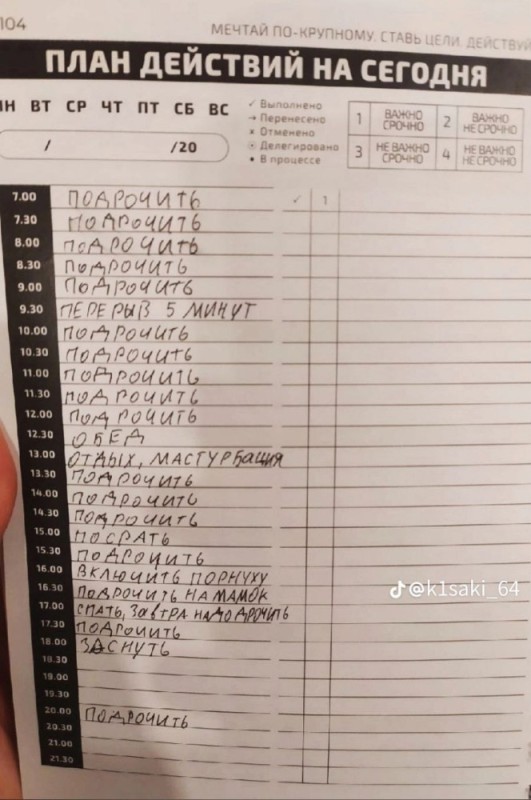 104
МЕЧТАЙ ПО-КРУПНОМУ. СТАВЬ ЦЕЛИ. ДЕЙСТВУЙ
ПЛАН ДЕЙСТВИЙ НА СЕГОДНЯ
ПН ВТ СР ЧТ ПТ СБ ВС
/ /20
✓ Выполнено
→ Перенесено
× Отменено
Делегировано
• В процессе
1 ВАЖНО СРОЧНО 2 ВАЖНО НЕ СРОЧНО
3 НЕ ВАЖНО СРОЧНО 4 НЕ ВАЖНО НЕ СРОЧНО
7.00 ПОДРОЧИТЬ ✓ 1
7.30 ПОДРОЧИТЬ
8.00 ПОДРОЧИТЬ
8.30 ПОДРОЧИТЬ
9.00 ПОДРОЧИТЬ
9.30 ПЕРЕРЫВ 5 МИНУТ
10.00 ПОДРОЧИТЬ
10.30 ПОДРОЧИТЬ
11.00 ПОДРОЧИТЬ
11.30 ПОДРОЧИТЬ
12.00 ПОДРОЧИТЬ
12.30 ОБЕД
13.00 ОТДЫХ, МАСТУРБАЦИЯ
13.30 ПОДРОЧИТЬ
14.00 ПОДРОЧИТЬ
14.30 ПОДРОЧИТЬ
15.00 ПОСРАТЬ
15.30 ПОДРОЧИТЬ
16.00 ВКЛЮЧИТЬ ПОРНУХУ
16.30 ПОДРОЧИТЬ НА МАМОК
17.00 СПАТЬ, ЗАВТРА НАДО ДРОЧИТЬ
17.30 ПОДРОЧИТЬ
18.00 ЗАСНУТЬ
18.30
19.00
19.30
20.00 ПОДРОЧИТЬ
20.30
21.00
21.30
@k1saki_64